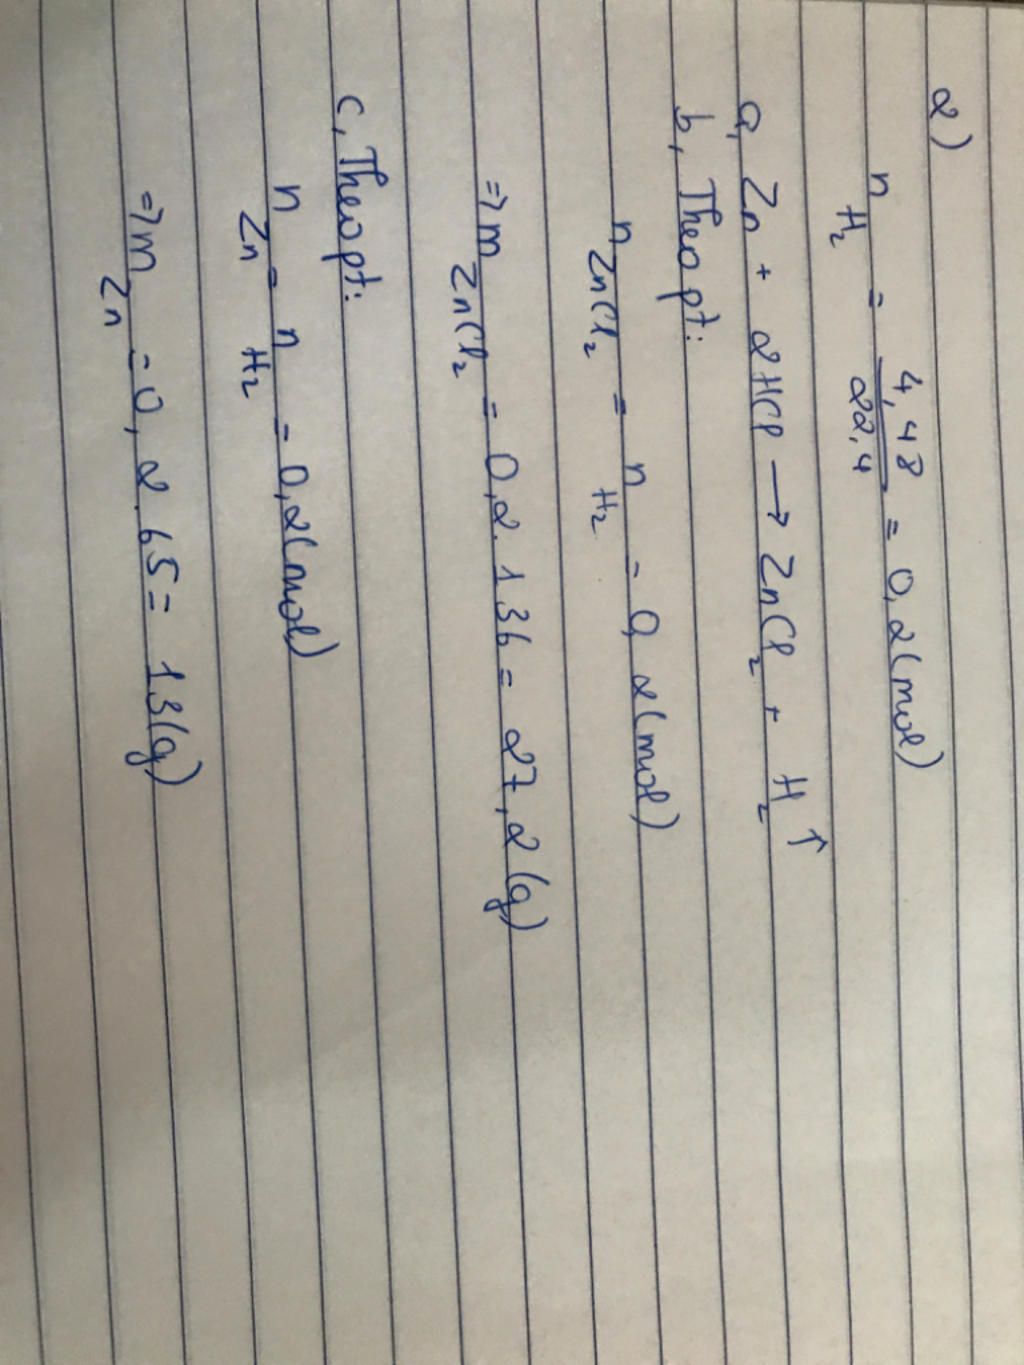 2)
n H₂ = 4,48 / 22,4 = 0,2 (mol)
a, Zn + 2HCl → ZnCl₂ + H₂ ↑
b, Theo pt:
n ZnCl₂ = n H₂ = 0,2 (mol)
=> m ZnCl₂ = 0,2 . 136 = 27,2 (g)
c, Theo pt:
n Zn = n H₂ = 0,2 (mol)
=> m Zn = 0,2 . 65 = 13 (g)